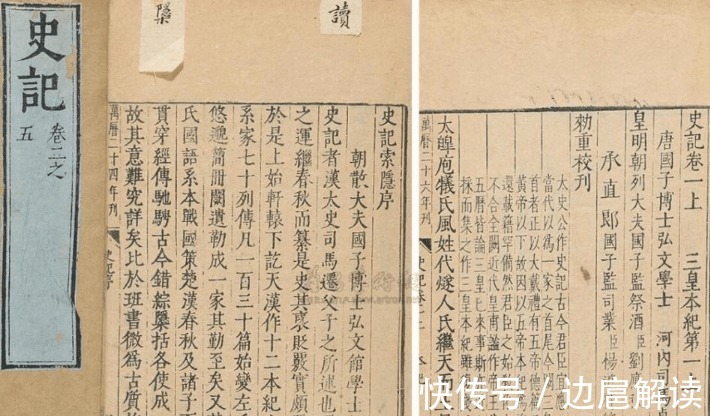 史記
卷二之
五
讀
史記索隱序
朝散大夫國子博士弘文館學士
史記者漢太史司馬遷父子之所述也
之運繼春秋而纂是史其褒貶覈實頗
於是上始軒轅下訖天漢作十二本紀
系家七十列傳凡一百三十篇始變左
悠邈簡冊闕遺勒成一家其勤至矣又
氏國語系本戰國策楚漢春秋及諸子
貫穿經傳馳騁古今錯綜檃括各使成
故其意難究詳矣比於班書微為古質
萬曆二十四年刊
史記序
史記卷一上 三皇本紀第一
唐國子博士弘文學士 河內司馬
皇明朝列大夫國子監祭酒臣劉應
承直郎國子監司業臣楊
勑重校刊
太史公作史記古今君臣宜
當代以為一家之首尾今
首者正以大戴禮有五帝
黃帝以下故因以五帝本
還載籍罕備然君臣之始
不合全闕近代皇甫謐作帝
五曆皆論三皇已來事斯
採而集之作三皇本紀雖
太皞庖犧氏風姓代燧人氏繼天
萬曆二十六年刊
快传号 / 边扈解读